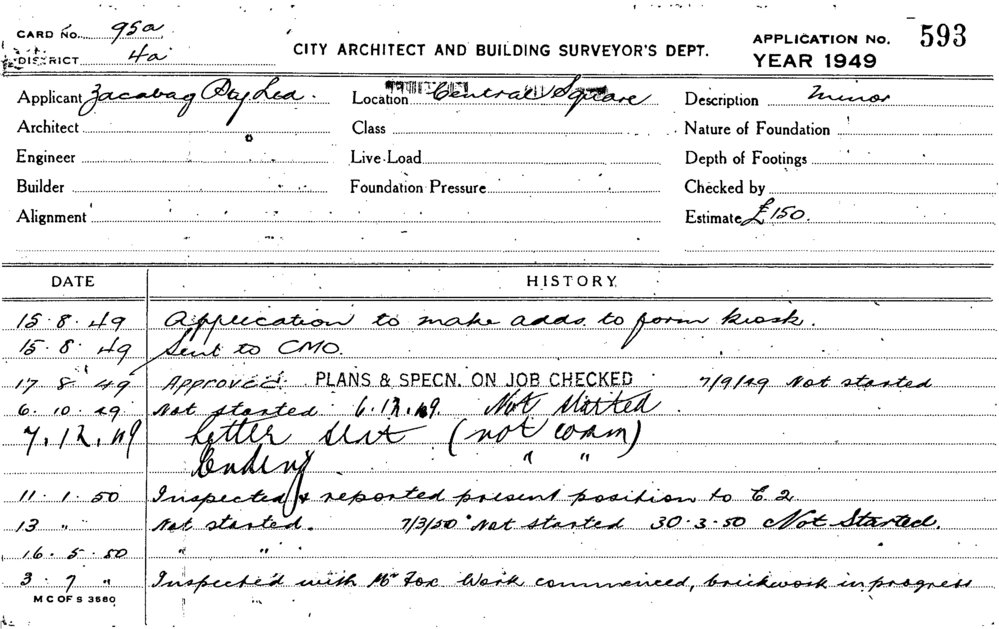 CARD No. 95a
DISTRICT 4a
CITY ARCHITECT AND BUILDING SURVEYOR'S DEPT.
APPLICATION No. 593
YEAR 1949
Applicant Pty Ltd. Location Central Square Description Minor
Architect Class Nature of Foundation
Engineer Live Load Depth of Footings
Builder Foundation Pressure Checked by
Alignment Estimate £150.
DATE HISTORY
15.8.49 Application to make adds. to form kiosk.
15.8.49 Sent to CMO.
17 8 49 Approved. PLANS & SPECN. ON JOB CHECKED 7/9/49 Not started
6.10.49 Not started 6.12.49. Not started
7.12.49 Letter sent (not comm)
" "
11.1.50 Inspected & reported present position to E.2
13 " " Not started. 7/3/50 Not started 30.3.50 Not Started.
16.5.50 " "
3.7 " Inspected with Mr Fox Work commenced, brickwork in progress
M C OF S 3560